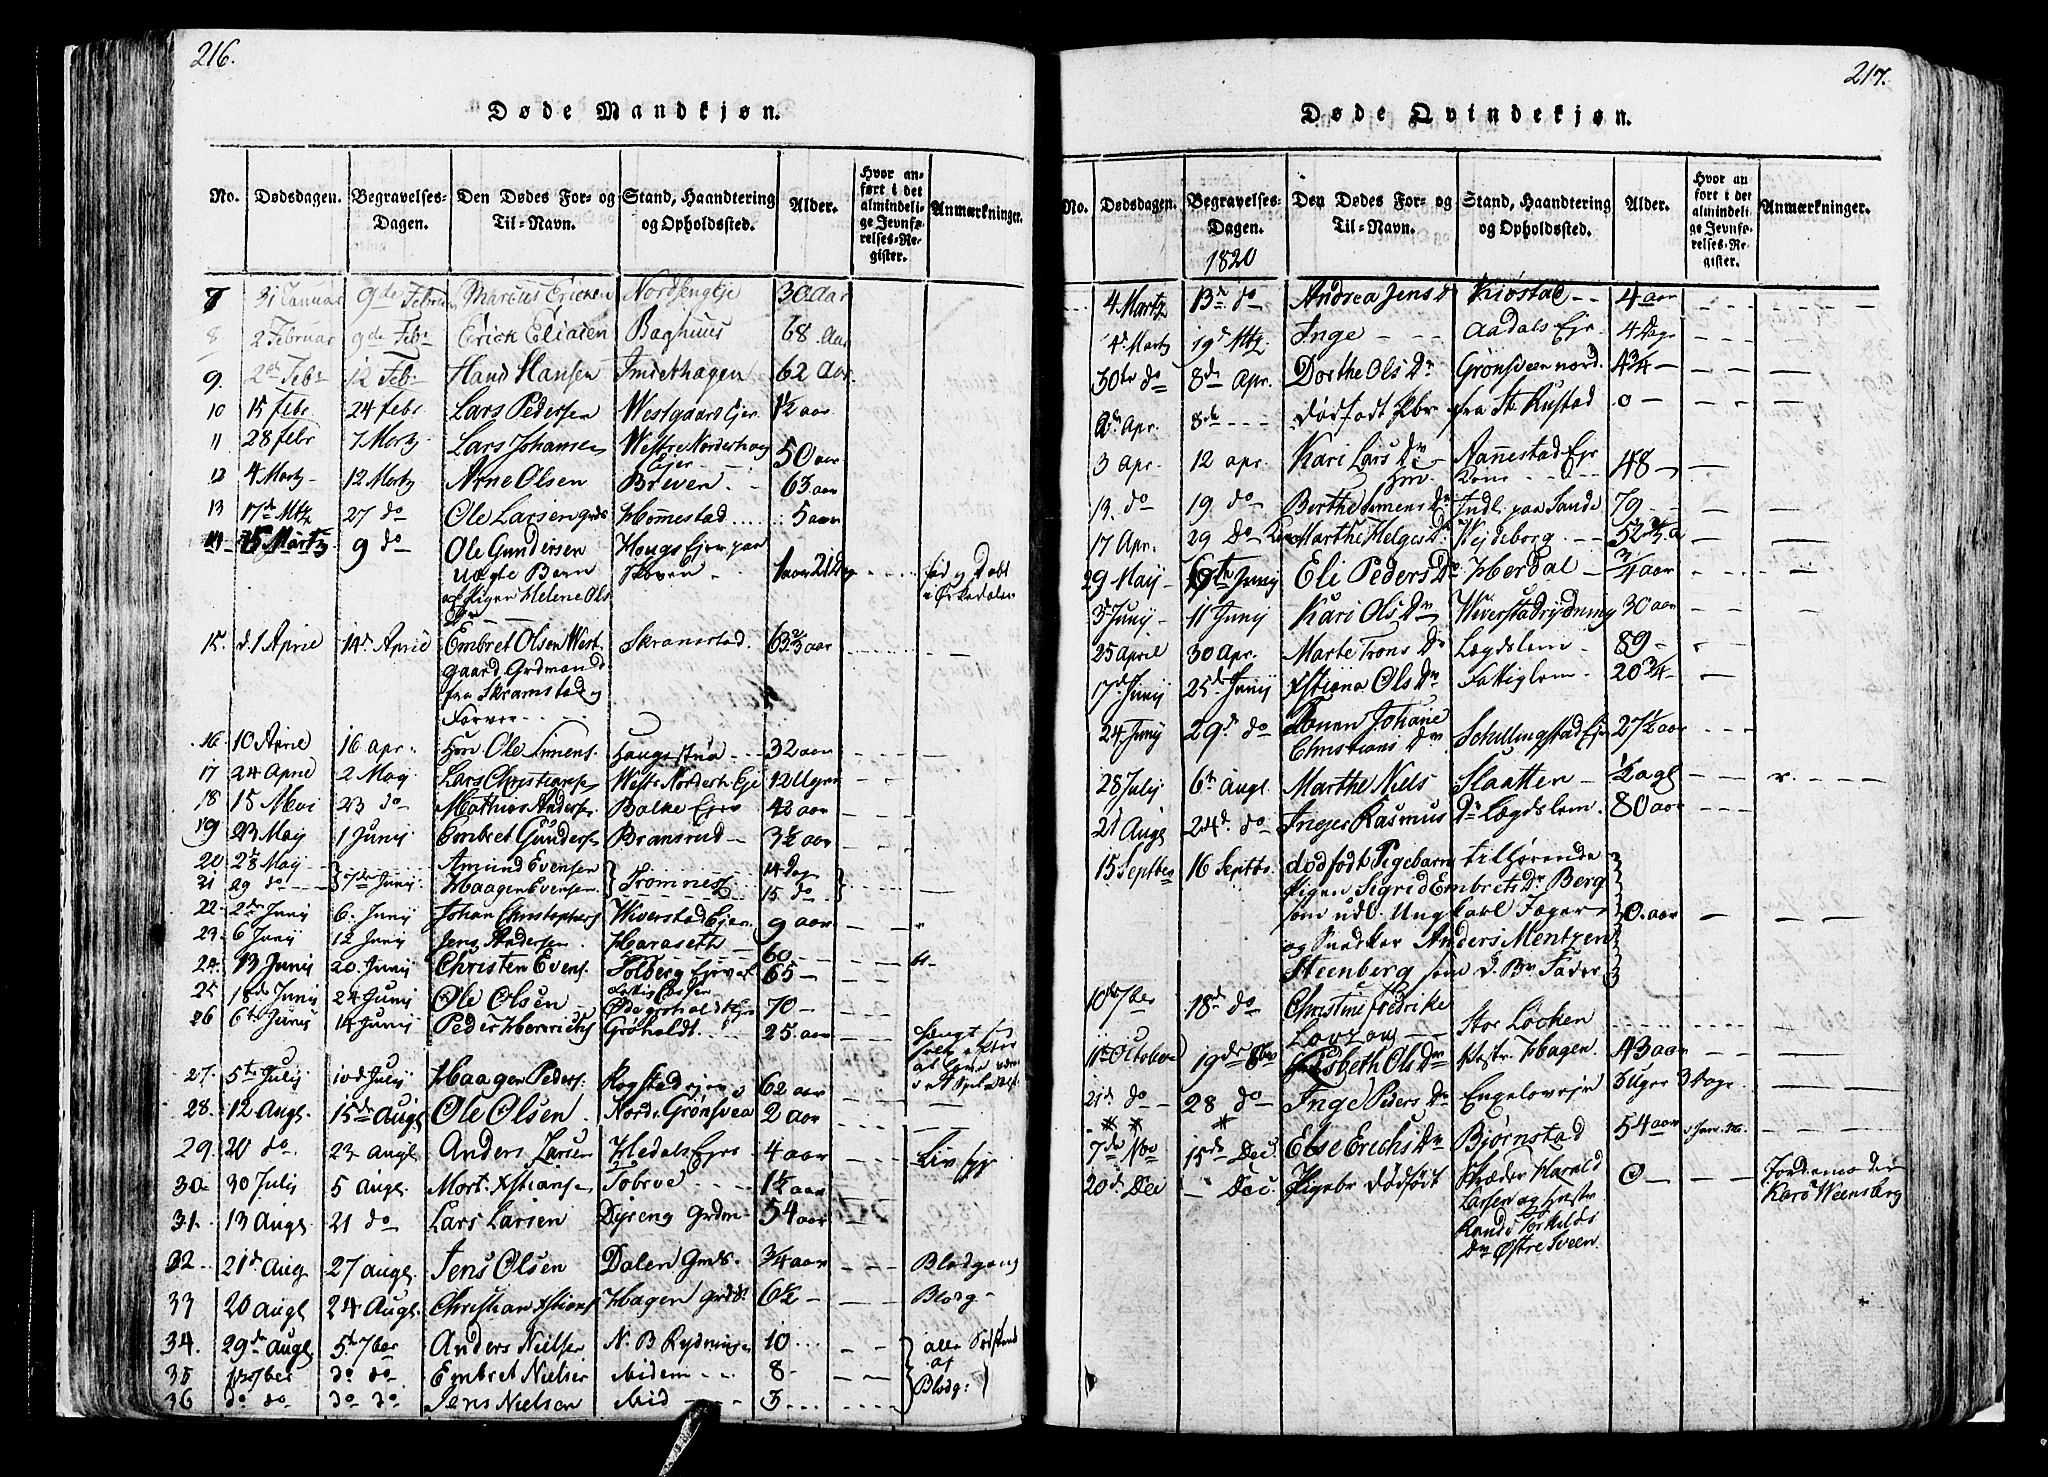 216.
Døde Mandkjøn.
No. Dødsdagen. Begravelses-Dagen. Den Dødes For- og Til-Navn. Stand, Haandtering og Opholdssted. Alder. Hvor anført i det almindelige Jevnførelses-Register. Anmærkninger.
7 31 Januar 9de Februar Marcus Ericksen Nordsengeje 30 Aar
8 2 Februar 9de Febr Erick Eliasen Baghuus 68 Aar
9. 2de Febr 12 Febr Hans Hansen Imdethagen 62 Aar
10 15 Febr 24 Febr Lars Pedersen Westgaards Ejer 1½ aar
11 28 febr 7 Martz Lars Johansen Westre Norderhoug
Ejer 50 aar
12 4 Martz 12 Martz Arne Olsen Breven 63 aar
13 17de Mtz 27 do Ole Larsen Grds Homestad 5 aar
14 5 Martz 9 do Ole Gundersen Hougs Ejer paa
Uægte Barn Skoven 1 aar 21 Dag fød og Døbt
af Pigen Helene Ols i Ørkedalen
Dr
15. d. 1 April 14de April Embret Olsen West- Skramstad 63⅔ aar
gaard Grdmand
fra Skramstad
Forver
16 10 April 16 apr. Ole Simens. Hougsstua 32 aar
17 24 April 2 May Lars Christiansen Westre Norderh. Eje 12 Uger
18 15 Mai 23 do Mathias Anders. Balke Ejer 42 aar
19 23 May 1 Junij Embret Gunders Bransrud 3½ aar
20 28 May Amund Evensen 14 Dage
21 29 do 7de Junij Haagen Evensen Tromnes 15 do
22 2de Junij 6. Junij Johan Christophers Wiverstad Ejer 9 aar
23. 6 Junij 12 Junij Jens Andersen Haraseth 60
24. 13 Junij 20. Junij Christen Evens. Solberg Ejer 65
25 18de Junij 24 Junij Ole Olsen 70
26 6te Junij 14 Junij Peder Henrichs Grøholdt 25 aar
27. 5te Julij 10de Julij Haagen Peders. 62 aar
28. 12 Augt. 15de Augt Ole Olsen Nordr. Grønsvea 2 aar
29. 20 do. 23 augt. Anders Larsen Hedals Ejer 4 aar
30 30 Julij 5 Augt. Mort. Xstians. Tobrue 1½ aar
31. 13 Augt 21 do Lars Larsen Dyseng Grdm 54 aar
32 21de Aug 27 augt. Jens Olsen Dalen Grds. ¾ aar Blodgang
33 20 Augt 24 Augt. Christian Xstians Hagen Grds 6½ Blodg
34. 29de Augt 5de 7ber Anders Nielsen N. B Rydningen 10 alle Sødskend
35 1 7ber do do Embret Nielsen ibidem 8 af
36 do do do do Jens Nielsen ibid 3 Blodg:
217.
Døde Qvindekjøn.
No. Dødsdagen. Begravelses-Dagen. Den Dødes For- og Til-Navn. Stand, Haandtering og Opholdssted. Alder. Hvor anført i det almindelige Jevnførelses-Register. Anmærkninger.
1820
4 Martz 13de do Andrea Jens D Kiøstad 4 aar
4de Martz 19de Mtz. Inge Aadals Ejer 4 Dage
30te do 8de Apr. Dorthe Ols Dr Grønsveen nord. 4¾
2de Apr. 8de Dødfødt fra St: Rustad 0
3 apr. 12 apr. Kari Lars Dr Aanestad Ejr 48
13. do 19. do Berthe Simens Dr Indl. paa Sande 79
17 Apr. 29 do Marthe Helges Dr Hejdeborg 52¾ a
29 May 6te Junij Eli Peders Dr Herdal ¾ aar
3de Junij 11 Junij Kari Ols Dr Wiverstadrydning 30 aar
25 april 30 Apr. Marte Trons Dr Lægdslem 89
17de Junij 25de Junij Xstiana Ols Dr Fattiglem 20¾
24 Junij 29de do Johane
Christians Dr Schillingstad Ejer 27½ aar
28 Julij 6te Augt. Marthe Niels Slaatten
21 Augt 24de do Inger Rasmus Dr Lægdslem 80 aar
15 Septbr 16 Septbr. dødfødt Pigebarn tilhørende
Pigen Sigrid Embrets Dr Berg
som udl. Ungkarl Jæger 0. aar
og Snedker Anders Mentzen
Steenberg som d. Bn Fader
10de 7ber 18de do Christine Fredrike
Lovzow Stor Løcken
11te October 19de 8br Lisbeth Ols Dr Hagen 43 aar
21de do 28 do Inge Peders Dr Engelovseje 3 uger 3 Dage
7de Nov 15de Dec. Else Erichs Dr Bjørnstad 54 aar
20de Dec Dec. Pigebr Dødfødt Skræder Harald 0 Jordemoder
Larsen og Hustr Kari Weensberg
Randi Torkilds
Dr Østre Sveen.